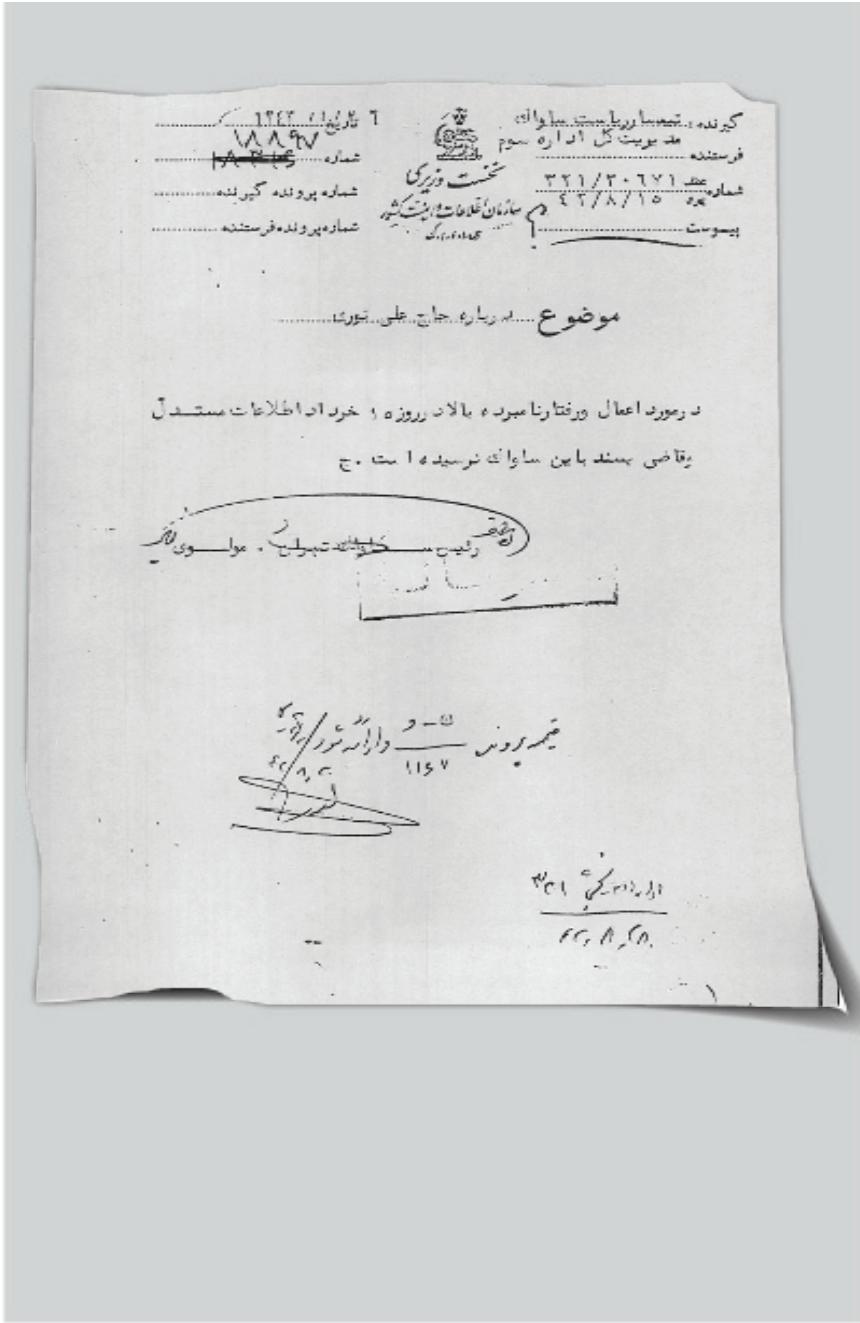 گیرنده: تیمسار ریاست ساواک
مدیریت کل اداره سوم
فرستنده
شماره ۳۲۱/۳۰۶۷۱
۴۲/۸/۱۵
پیوست
نخست وزیری
سازمان اطلاعات و امنیت کشور
س.ا.و.ا.ک
تاریخ
شماره ۱۸۸۹۷
شماره پرونده گیرنده
شماره پرونده فرستنده
موضوع درباره حاج علی نوری
درمورد اعمال ورفتارنامبرده بالا در روز ۱۵ خرداد اطلاعات مستدل
وقاضی پسند باین ساواک نرسیده است . ج
رئیس ساواک تهران . مولوی
ضمیمه پرونده
۱۱۶۷
۴۲/۸/۲۰
۳۲۱
۴۲/۸/۱۸